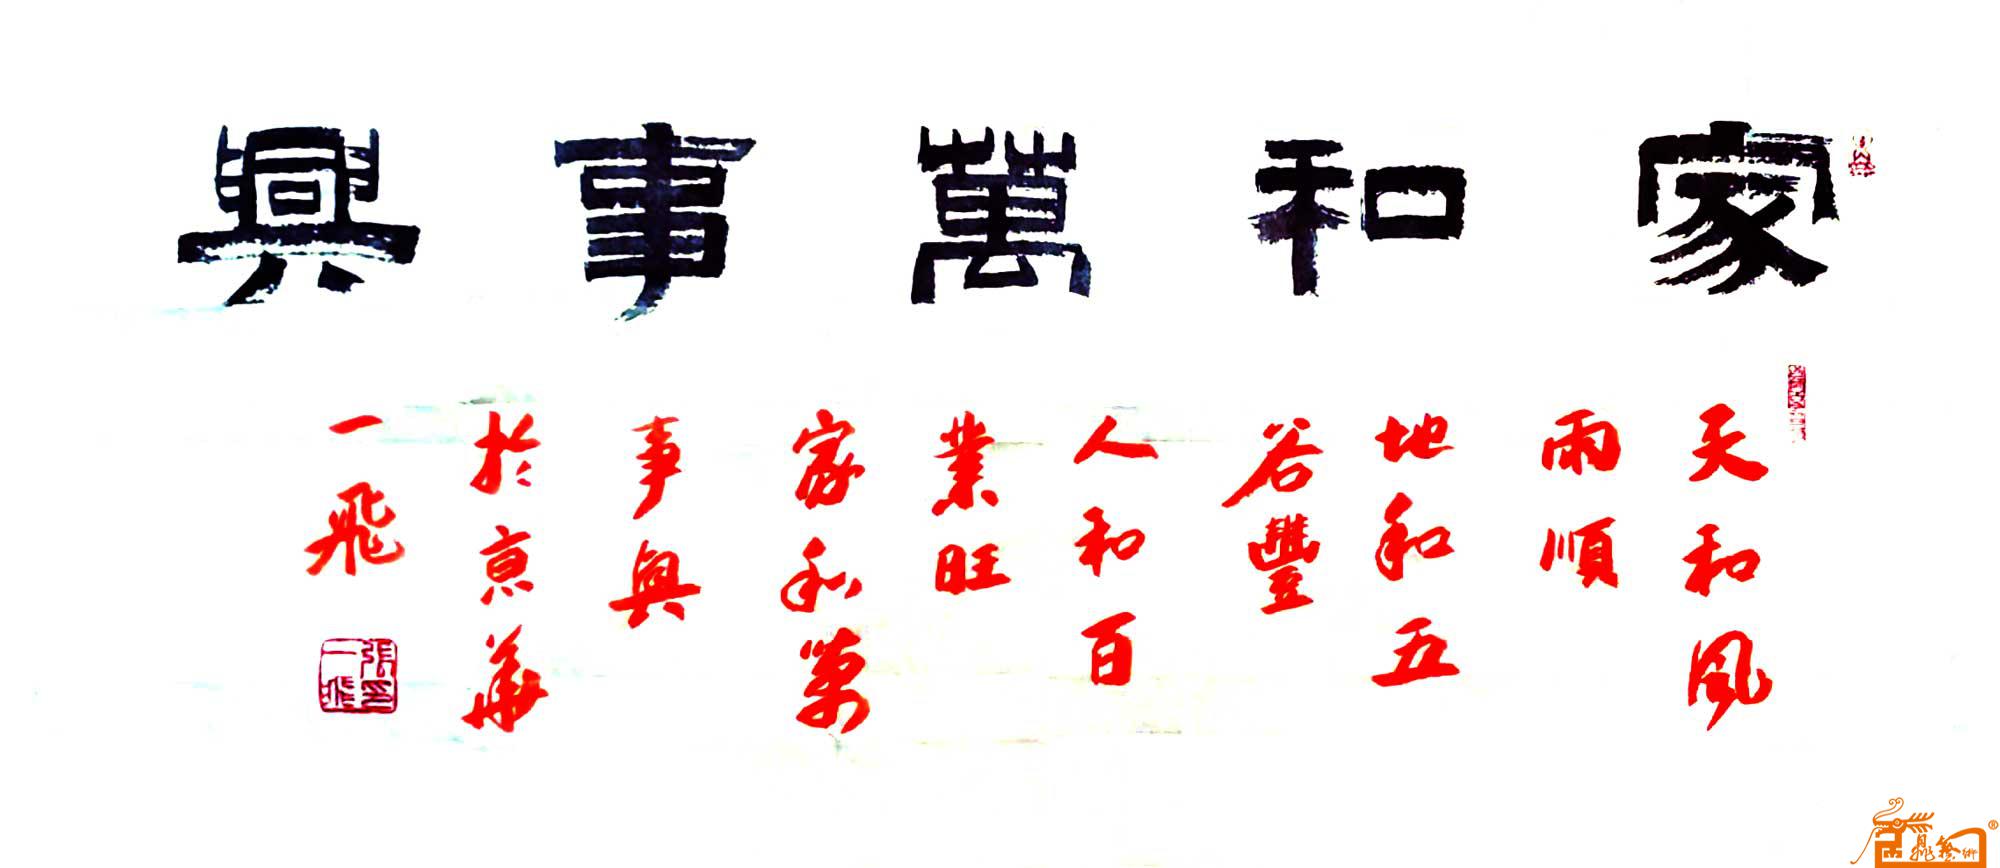 家和萬事興
天和風
雨順
地和五
谷豐
人和百
業旺
家和萬
事興
於京華
一飛
張一飛印